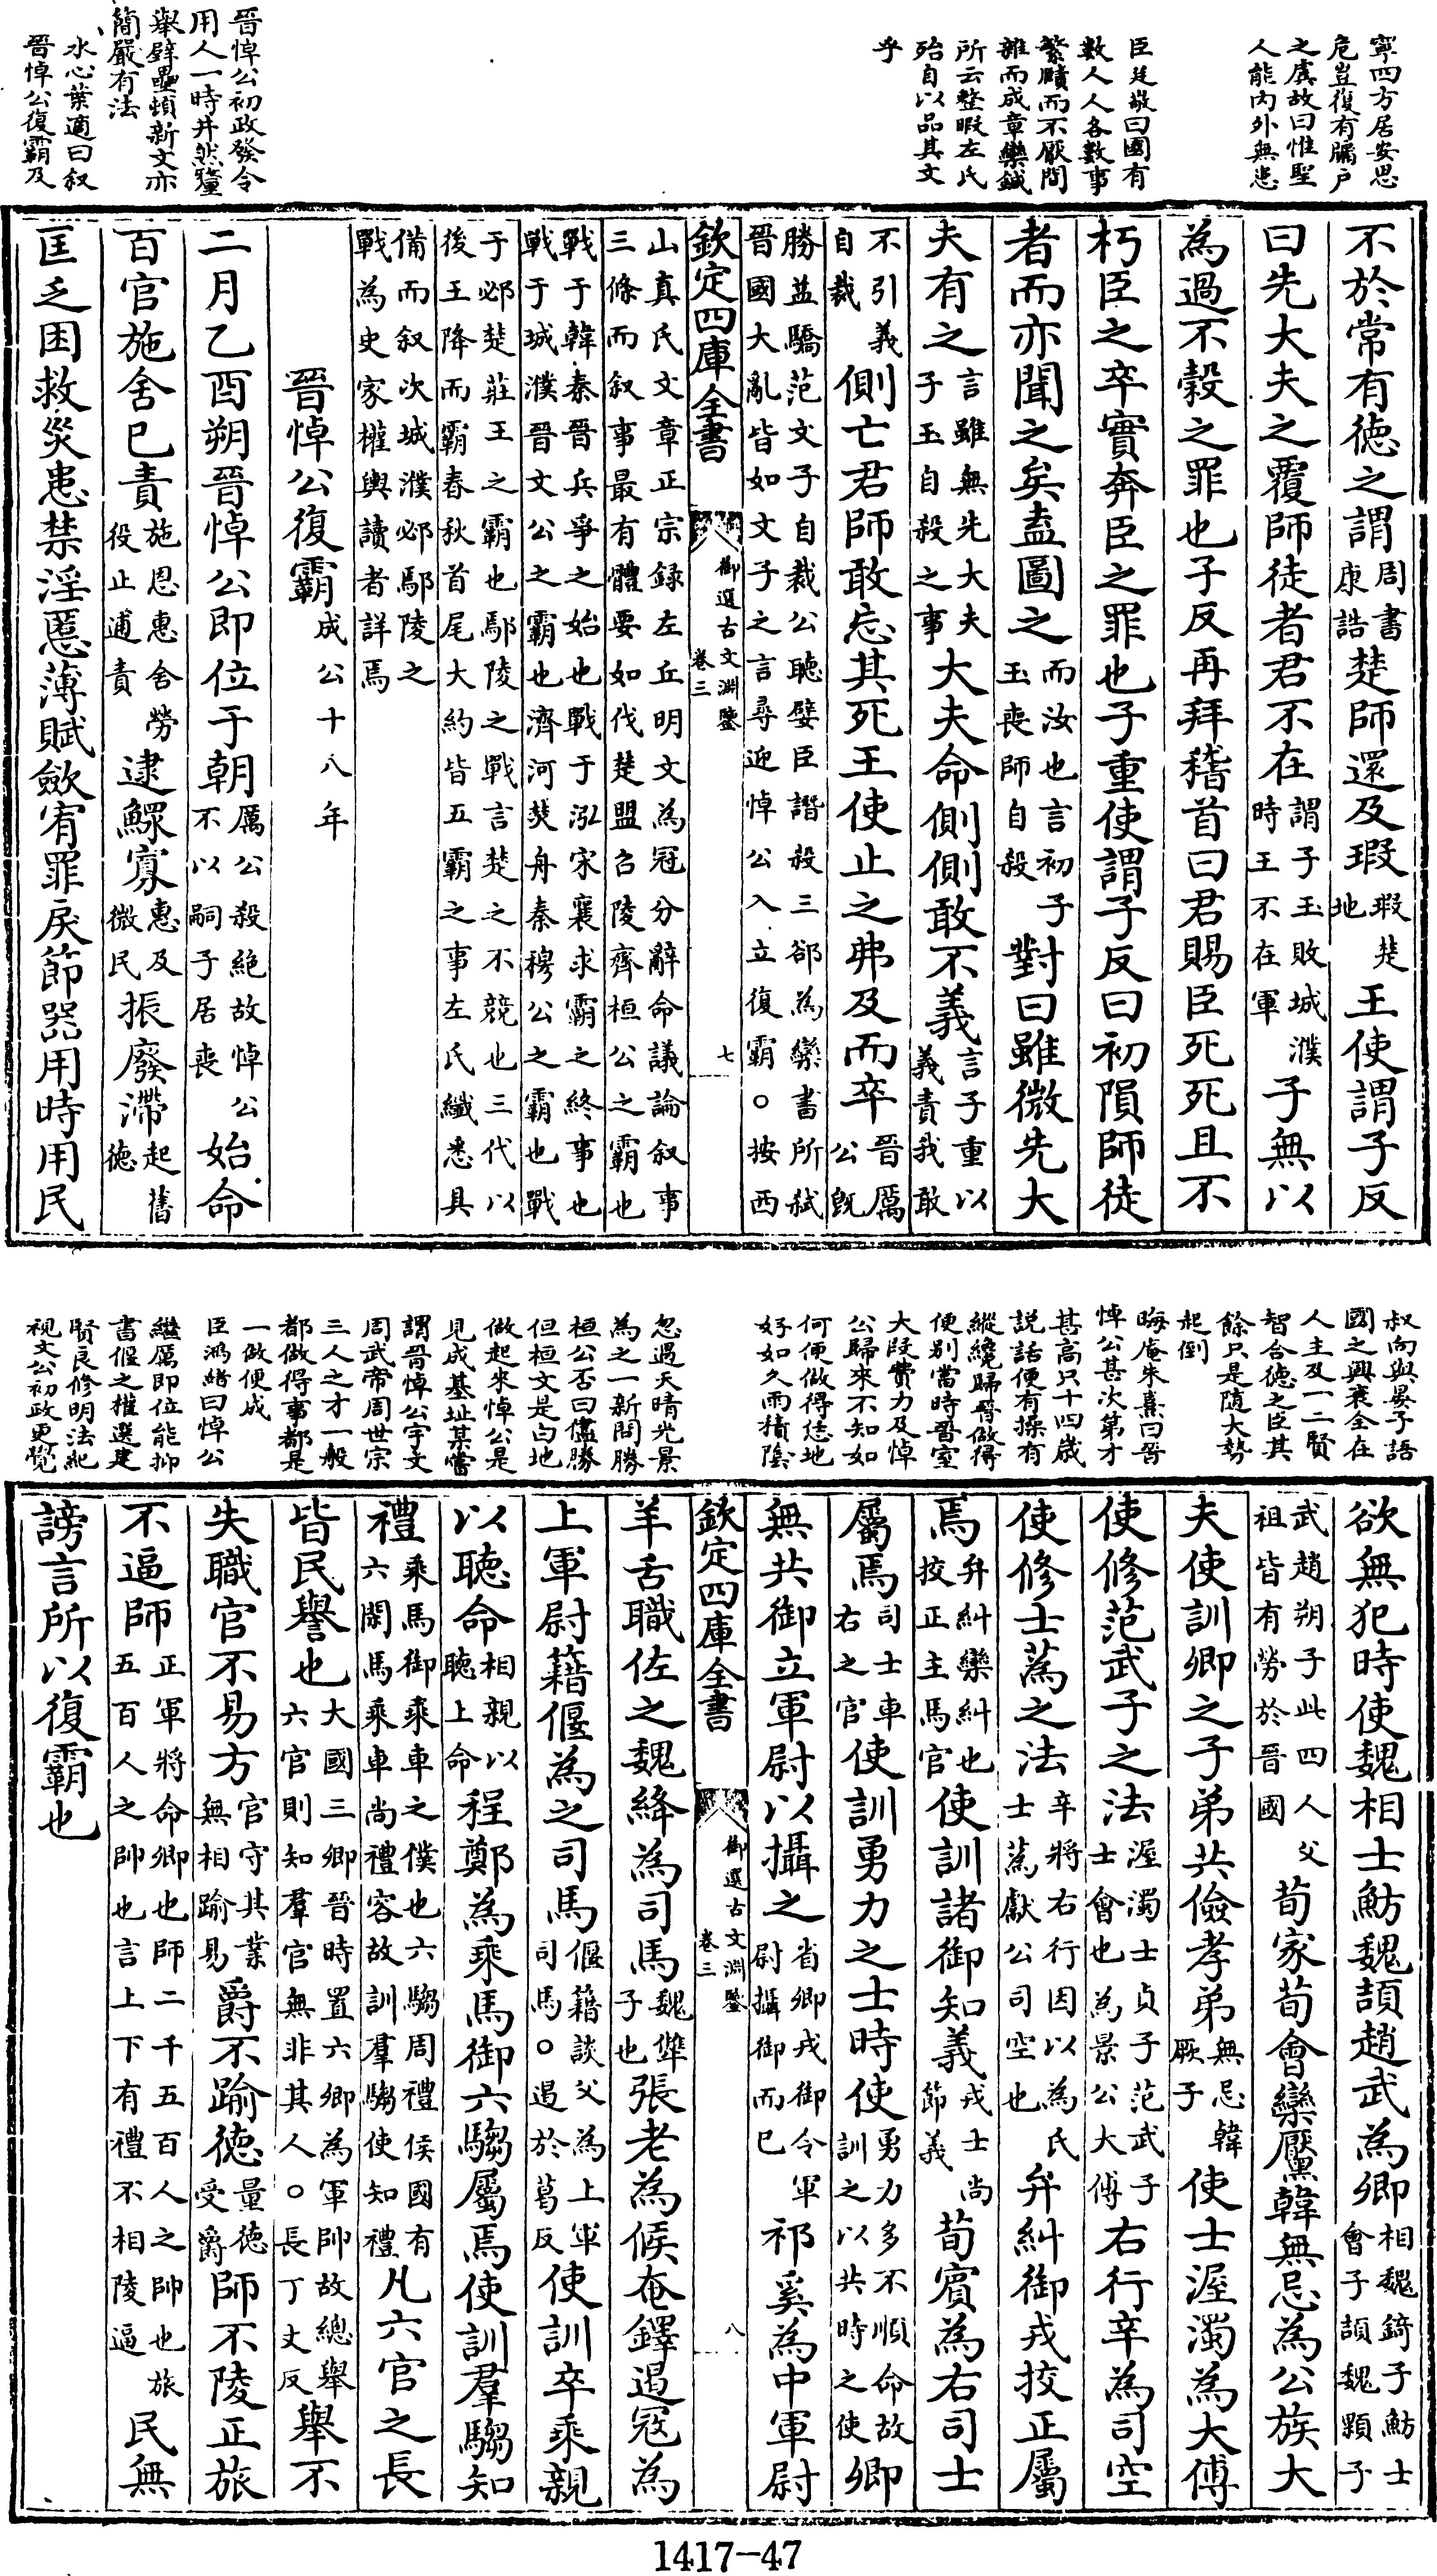 寧四方居安思
危豈復有牖戸
之虞故曰惟聖
人能内外無患
臣廷敬曰國有
數人人各數事
繁賾而不厭間
雜而成章欒鍼
所云整暇左氏
殆自以品其文
乎
晉悼公初政發令
用人一時井然釐
舉壁壘頓新文亦
簡嚴有法
水心葉適曰叙
晉悼公復霸及
不於常有德之謂周書康誥楚師還及瑕瑕楚地王使謂子反
曰先大夫之覆師徒者君不在謂子玉敗城濮時王不在軍子無以
為過不榖之罪也子反再拜稽首曰君賜臣死死且不
朽臣之卒實奔臣之罪也子重使謂子反曰初隕師徒
者而亦聞之矣盍圖之而汝也言初子玉喪師自殺對曰雖微先大
夫有之言雖無先大夫子玉自殺之事大夫命側側敢不義言子重以義責我敢
不引義自裁側亡君師敢忘其死王使止之弗及而卒晉厲公既
勝益驕范文子自裁公聽嬖臣譖殺三郤為欒書所弑
晉國大亂皆如文子之言尋迎悼公入立復霸○按西
欽定四庫全書 御選古文淵鑒 卷三 七
山真氏文章正宗録左丘明文為冠分辭命議論叙事
三條而叙事最有體要如伐楚盟召陵齊桓公之霸也
戰于韓秦晉兵爭之始也戰于泓宋襄求霸之終事也
戰于城濮晉文公之霸也濟河焚舟秦穆公之霸也戰
于邲楚莊王之霸也鄢陵之戰言楚之不競也三代以
後王降而霸春秋首尾大約皆五霸之事左氏纖悉具
備而叙次城濮邲鄢陵之
戰為史家權輿讀者詳焉
晉悼公復霸成公十八年
二月乙酉朔晉悼公即位于朝厲公殺絶故悼公不以嗣子居喪始命
百官施舍已責施恩惠舍勞役止逋責逮鰥寡惠及微民振廢滯起舊德
匡乏困救災患禁淫慝薄賦斂宥罪戾節器用時用民
叔向與晏子語
國之興衰全在
人主及一二賢
智合徳之臣其
餘只是随大勢
起倒
晦庵朱熹曰晉
悼公甚次第才
甚高只十四歳
說話便有操有
縱纔歸晉做得
便别當時晉室
大段費力及悼
公歸來不知如
何便做得恁地
好如久雨積陰
忽遇天晴光景
為之一新問勝
桓公否曰儘勝
但桓文是白地
做起來悼公是
見成基址某嘗
謂晉悼公宇文
周武帝周世宗
三人之才一般
都做得事都是
一做便成
臣鴻緒曰悼公
繼厲即位能抑
書偃之權選建
賢良修明法紀
視文公初政更覺
欲無犯時使魏相士魴魏頡趙武為卿相魏錡子魴士會子頡魏顆子
武趙朔子此四人父祖皆有勞於晉國荀家荀會欒黶韓無忌為公族大
夫使訓卿之子弟共儉孝弟無忌韓厥子使士渥濁為大傅
使修范武子之法渥濁士貞子范武子士會也為景公大傅右行辛為司空
使修士蒍之法辛將右行因以為氏士蒍獻公司空也弁糾御戎挍正屬
焉弁糾欒糾也挍正主馬官使訓諸御知義戎士尚節義荀賓為右司士
屬焉司士車右之官使訓勇力之士時使勇力多不順命故訓之以共時之使卿
無共御立軍尉以攝之省卿戎御令軍尉攝御而已祁奚為中軍尉
欽定四庫全書 御選古文淵鑒 卷三 八
羊舌職佐之魏絳為司馬魏犨子也張老為候奄鐸遏寇為
上軍尉籍偃為之司馬偃籍談父為上軍司馬○遏於葛反使訓卒乘親
以聽命相親以聽上命程鄭為乘馬御六騶屬焉使訓羣騶知
禮乘馬御乘車之僕也六騶周禮侯國有六閑馬乘車尚禮容故訓羣騶使知禮凡六官之長
皆民譽也大國三卿晉時置六卿為軍帥故總舉六官則知羣官無非其人○長丁丈反舉不
失職官不易方官守其業無相踰易爵不踰德量德受爵師不陵正旅
不逼師正軍將命卿也師二千五百人之帥也旅五百人之帥也言上下有禮不相陵逼民無
謗言所以復霸也
1417-47